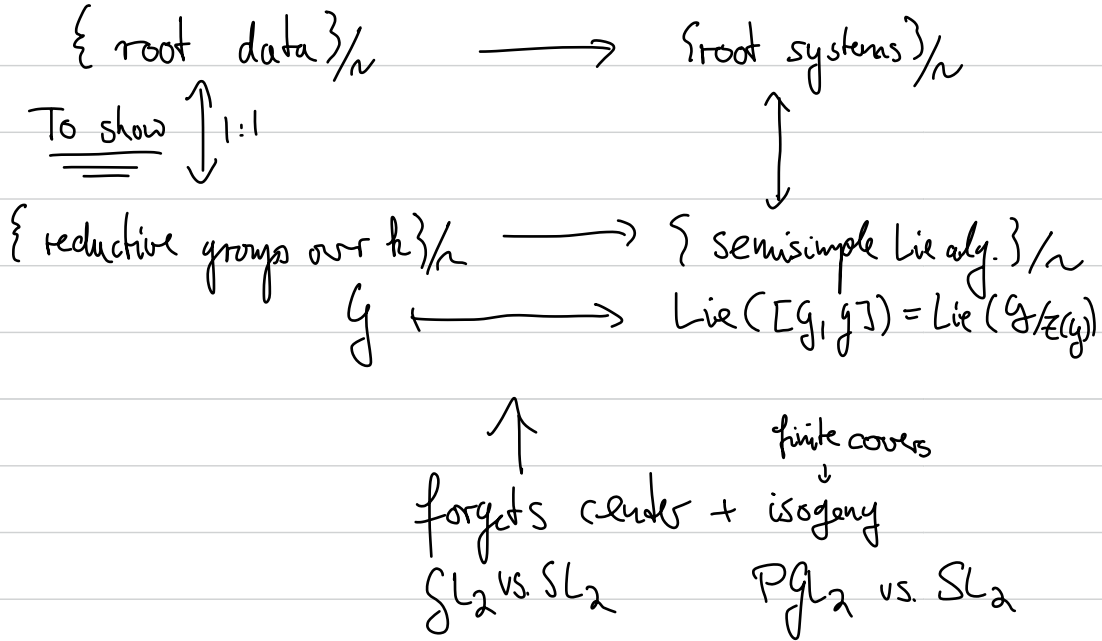 { root data }/~ ⟶ {root systems }/~
To show ↕ 1:1 ↕
{ reductive groups over k}/~ ⟶ { semisimple Lie alg. }/~
G ⟼ Lie([G,G]) = Lie(G/Z(G))
↑ finite covers
↓
forgets center + isogeny
GL₂ vs. SL₂ PGL₂ vs. SL₂